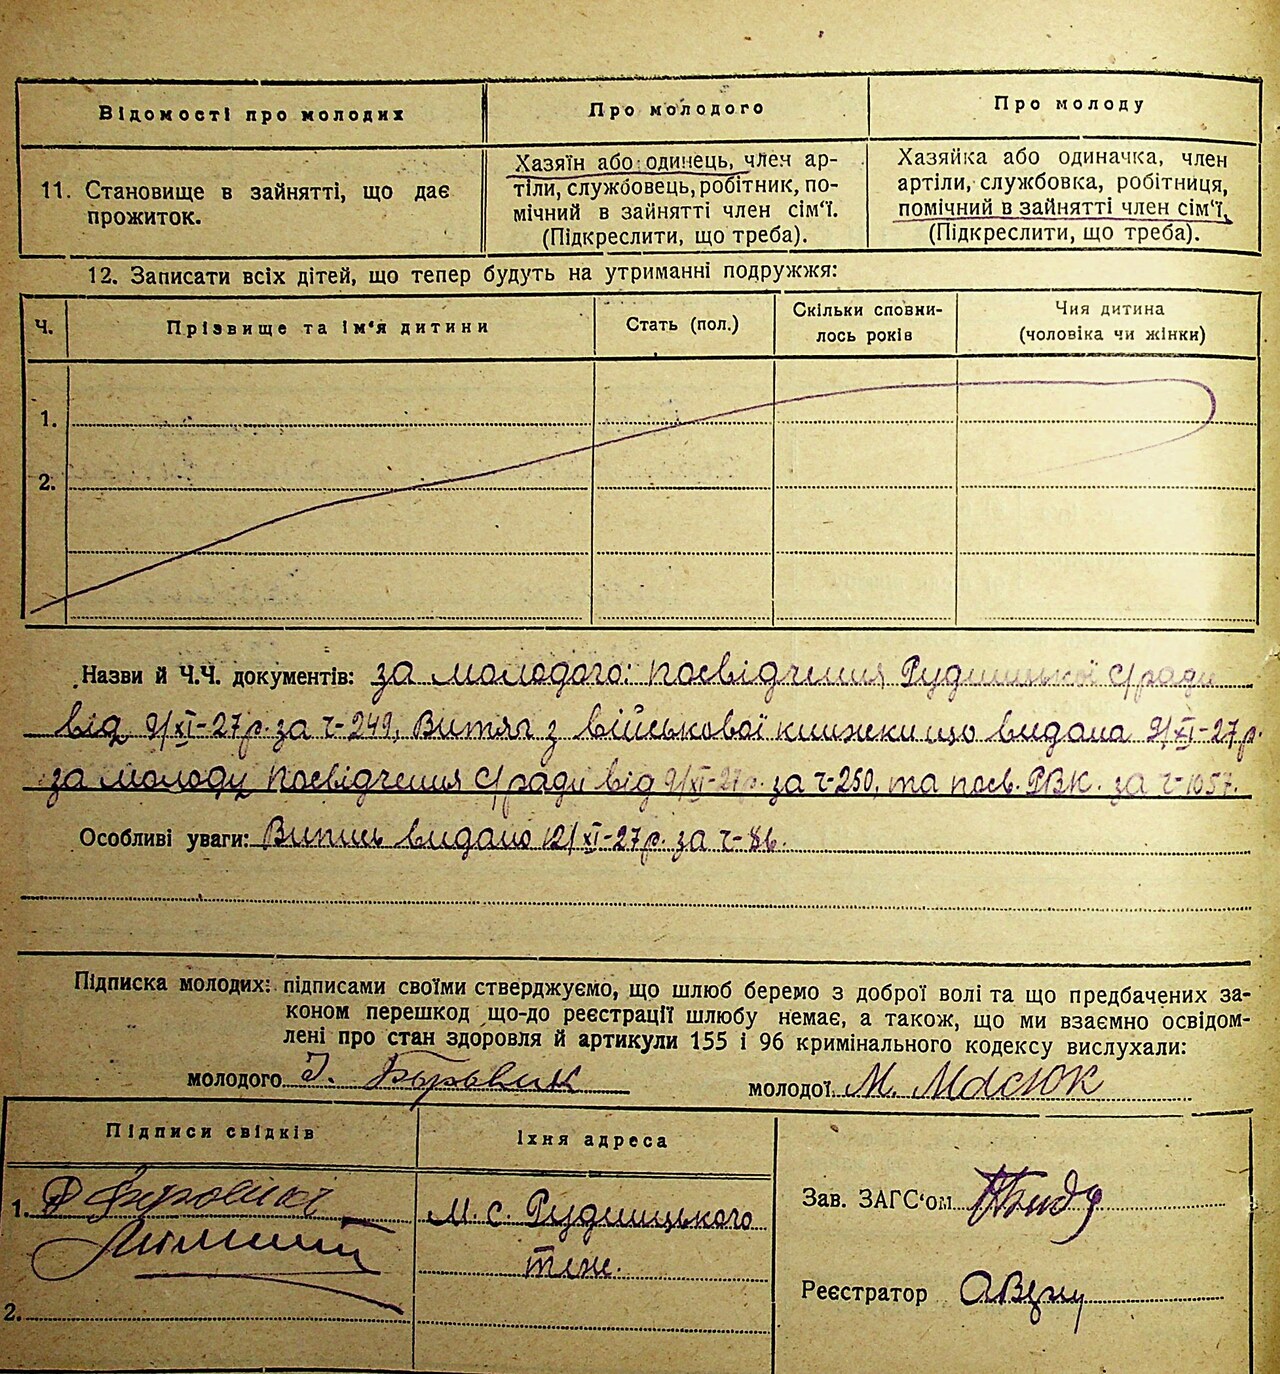 Відомості про молодих
Про молодого
Про молоду
11. Становище в зайнятті, що дає
прожиток.
Хазяїн або одинець, член ар-
тіли, службовець, робітник, по-
мічний в зайнятті член сім'ї.
(Підкреслити, що треба).
Хазяйка або одиначка, член
артіли, службовка, робітниця,
помічний в зайнятті член сім'ї,
(Підкреслити, що треба).
12. Записати всіх дітей, що тепер будуть на утриманні подружжя:
Ч.
Прізвище та ім'я дитини
Стать (пол.)
Скільки сповни-
лось років
Чия дитина
(чоловіка чи жінки)
1.
2.
Назви й Ч.Ч. документів: за молодого: посвідчення Рудницької с/ради
від 9/XI-27р. за ч-249, Витяг з військової книжки що видана 9/XI-27р.
за молоду посвідчення с/ради від 9/XI-27р. за ч-250, та посв. РВК. за ч-1057.
Особливі уваги: Випись видано 12/XI-27р. за ч-86.
Підписка молодих: підписами своїми стверджуємо, що шлюб беремо з доброї волі та що предбачених за-
коном перешкод що-до реєстрації шлюбу немає, а також, що ми взаємно освідом-
лені про стан здоровля й артикули 155 і 96 кримінального кодексу вислухали:
молодого І. Боровик
молодої М. Масюк
Підписи свідків
Їхня адреса
1. Боровик
М. с. Рудницького
теж.
2.
Зав. ЗАГС'ом
Реєстратор